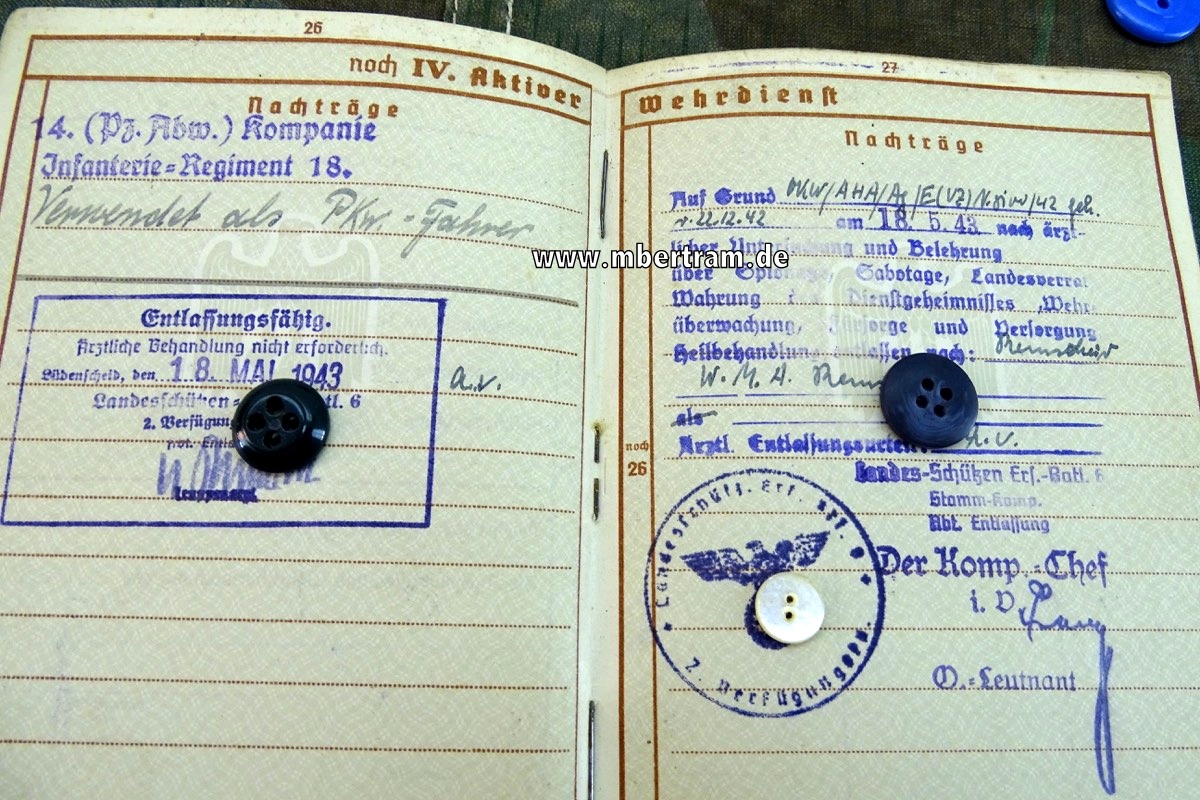 26
noch IV. Aktiver
Nachträge
14. (Pz. Abw.) Kompanie
Infanterie-Regiment 18.
Verwendet als PKw.-Fahrer
Entlassungsfähig.
Ärztliche Behandlung nicht erforderlich.
Lüdenscheid, den 18. MAI 1943
Landesschützen- tl. 6
2. Verfügun
27
Wehrdienst
Nachträge
Auf Grund OKW/AHA/Ag/E(Vz)
v. 22.12.42 am 18. 5. 43 nach ärzt-
licher Untersuchung und Belehrung
über Spionage, Sabotage, Landesverrat
Wahrung des Dienstgeheimnisses, Wehr-
überwachung, Fürsorge und Versorgung
Heilbehandlung entlassen nach: Remscheid
W. M. A. Rem
als
Arztl. Entlassungsurteil: a.v.
noch
26
Landes-Schützen Ers.-Batl. 6
Stamm-Komp.
Abt. Entlassung
Der Komp.-Chef
i. V.
O.-Leutnant
Landesschütz. Ers. Btl. 6
2. Verfügungskp.
www.mbertram.de